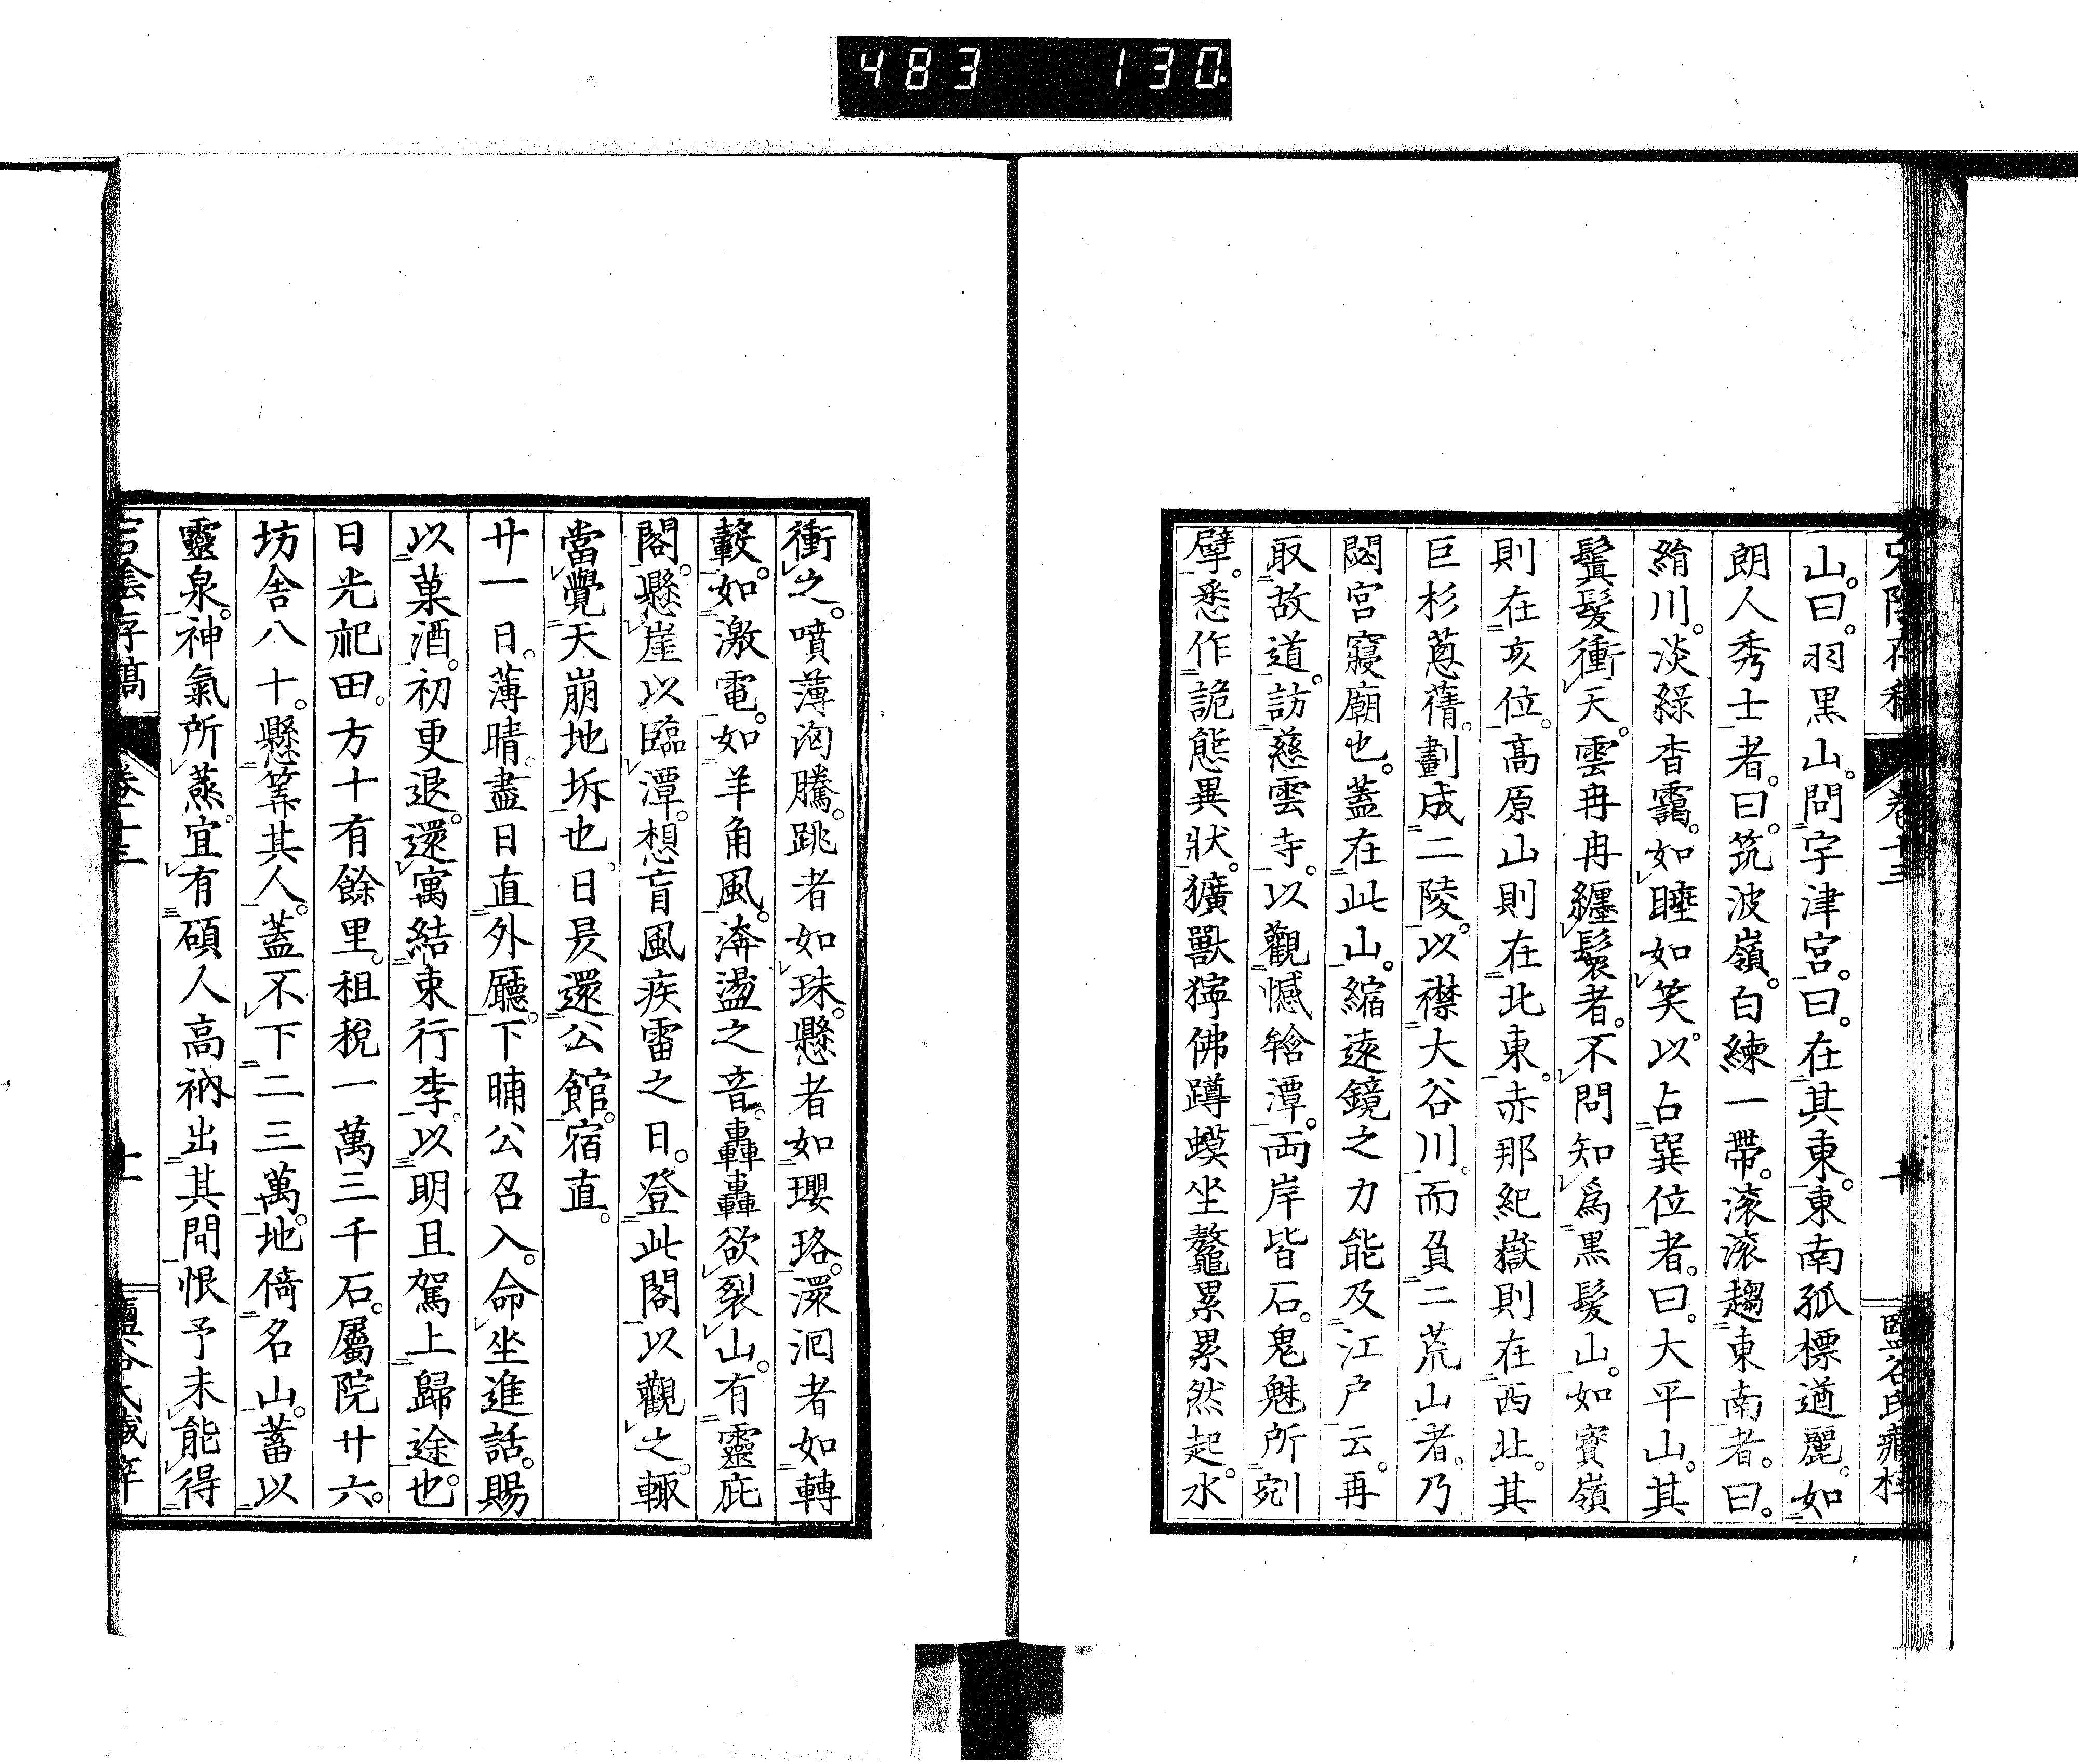 483 130
卷十三
十
山。曰。羽黑山。問宇津宮。曰。在其東。東南孤標遒麗。如
朗人秀士者。曰。筑波嶺。白練一帶。滚滚趨東南者。曰。
絹川。淡綠杳靄。如睡如笑。以占巽位者。曰。大平山。其
鬒髮衝天。雲冉冉纏鬟者。不問知爲黑髮山。如寳嶺
則在亥位。高原山則在北東。赤那紀嶽則在西北。其
巨杉蔥蒨。劃成二陵。以襟大谷川。而負二荒山者。乃
閟宮寢廟也。蓋在此山。縮遠鏡之力能及江户云。再
取故道。訪慈雲寺。以觀憾䃭潭。兩岸皆石。鬼魅所剜
擘。悉作詭態異狀。獷獸獰佛蹲蟆坐鼇累累然起。水
衝之。噴薄洶騰。跳者如珠。懸者如瓔珞。濴洄者如轉
轂。如激電。如羊角風。渀盪之音。轟轟欲裂山。有靈庇
閣。懸崖以臨潭。想盲風疾雷之日。登此閣以觀之。輙
當覺天崩地坼也。日昃還公館。宿直。
廿一日。薄晴。盡日直外廳。下晡公召入。命坐進話。賜
以菓酒。初更退。還寓結束行李。以明且駕上歸途也。
日光祀田。方十有餘里。租稅一萬三千石。屬院廿六。
坊舍八十。懸筭其人。蓋不下二三萬。地倚名山。蓄以
靈泉。神氣所蒸。宜有碩人高衲出其間恨予未能得
宕陰存稿
卷十三
十一